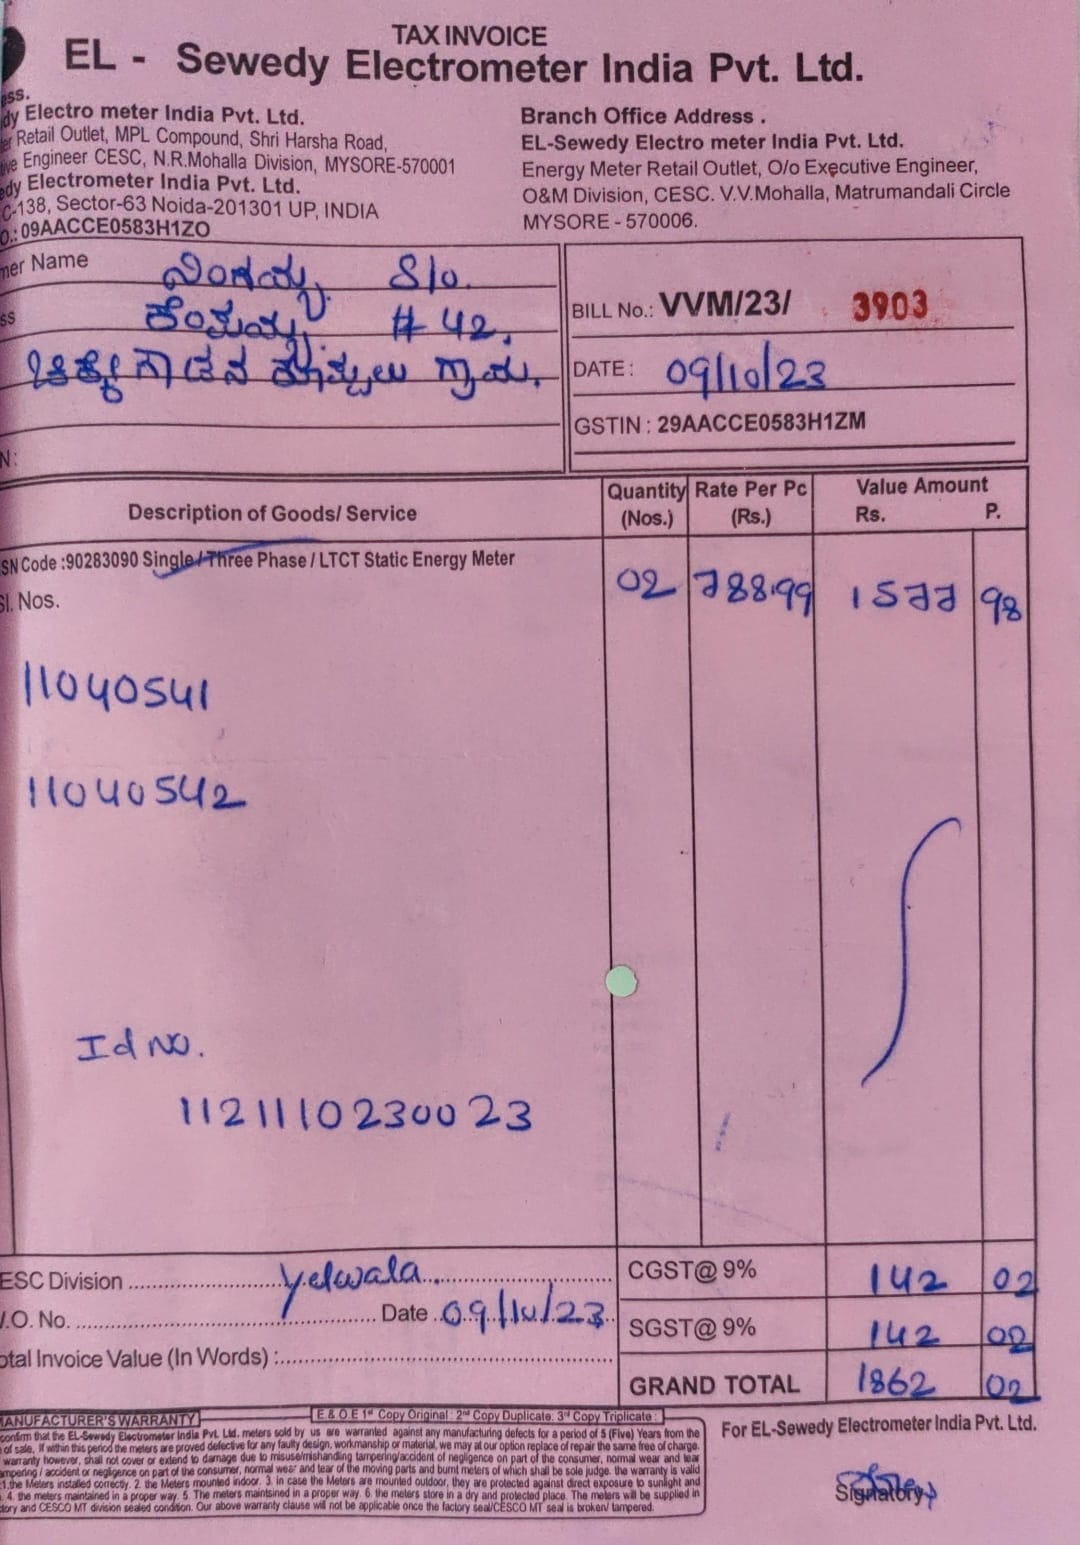 TAX INVOICE
EL - Sewedy Electrometer India Pvt. Ltd.
ess.
dy Electro meter India Pvt. Ltd.
er Retail Outlet, MPL Compound, Shri Harsha Road,
ive Engineer CESC, N.R.Mohalla Division, MYSORE-570001
edy Electrometer India Pvt. Ltd.
C-138, Sector-63 Noida-201301 UP, INDIA
O.: 09AACCE0583H1ZO
Branch Office Address .
EL-Sewedy Electro meter India Pvt. Ltd.
Energy Meter Retail Outlet, O/o Executive Engineer,
O&M Division, CESC. V.V.Mohalla, Matrumandali Circle
MYSORE - 570006.
mer Name S/o.
ss # 42,
ಗ್ರಾಮ.
N:
BILL No.: VVM/23/ 3903
DATE: 09/10/23
GSTIN : 29AACCE0583H1ZM
Description of Goods/ Service Quantity (Nos.) Rate Per Pc (Rs.) Value Amount Rs. P.
SN Code :90283090 Single / Three Phase / LTCT Static Energy Meter
Sl. Nos. 02 788.99 1577 98
11040541
11040542
Id No.
11211102300 23
ESC Division Yelwala
CGST@ 9% 142 02
.O. No. Date 09/10/23
SGST@ 9% 142 02
otal Invoice Value (In Words) :
GRAND TOTAL 1862 02
E & O E 1st Copy Original : 2nd Copy Duplicate: 3rd Copy Triplicate :
MANUFACTURER'S WARRANTY
confirm that the EL-Sewedy Electrometer India Pvt. Ltd. meters sold by us are warranted against any manufacturing defects for a period of 5 (Five) Years from the
of sale. If within this period the meters are proved defective for any faulty design, workmanship or material, we may at our option replace of repair the same free of charge.
warranty however, shall not cover or extend to damage due to misuse/mishandling tampering/accident of negligence on part of the consumer, normal wear and tear
ampering / accident or negligence on part of the consumer, normal wear and tear of the moving parts and burnt meters of which shall be sole judge. the warranty is valid
1.the Meters installed correctly. 2. the Meters mounted indoor. 3. in case the Meters are mounted outdoor, they are protected against direct exposure to sunlight and
4. the meters maintained in a proper way. 5. The meters maintsined in a proper way. 6. the meters store in a dry and protected place. The meters will be supplied in
tory and CESCO MT division sealed condition. Our above warranty clause will not be applicable once the factory seal/CESCO MT seal is broken/ tampered.
For EL-Sewedy Electrometer India Pvt. Ltd.
Signatory